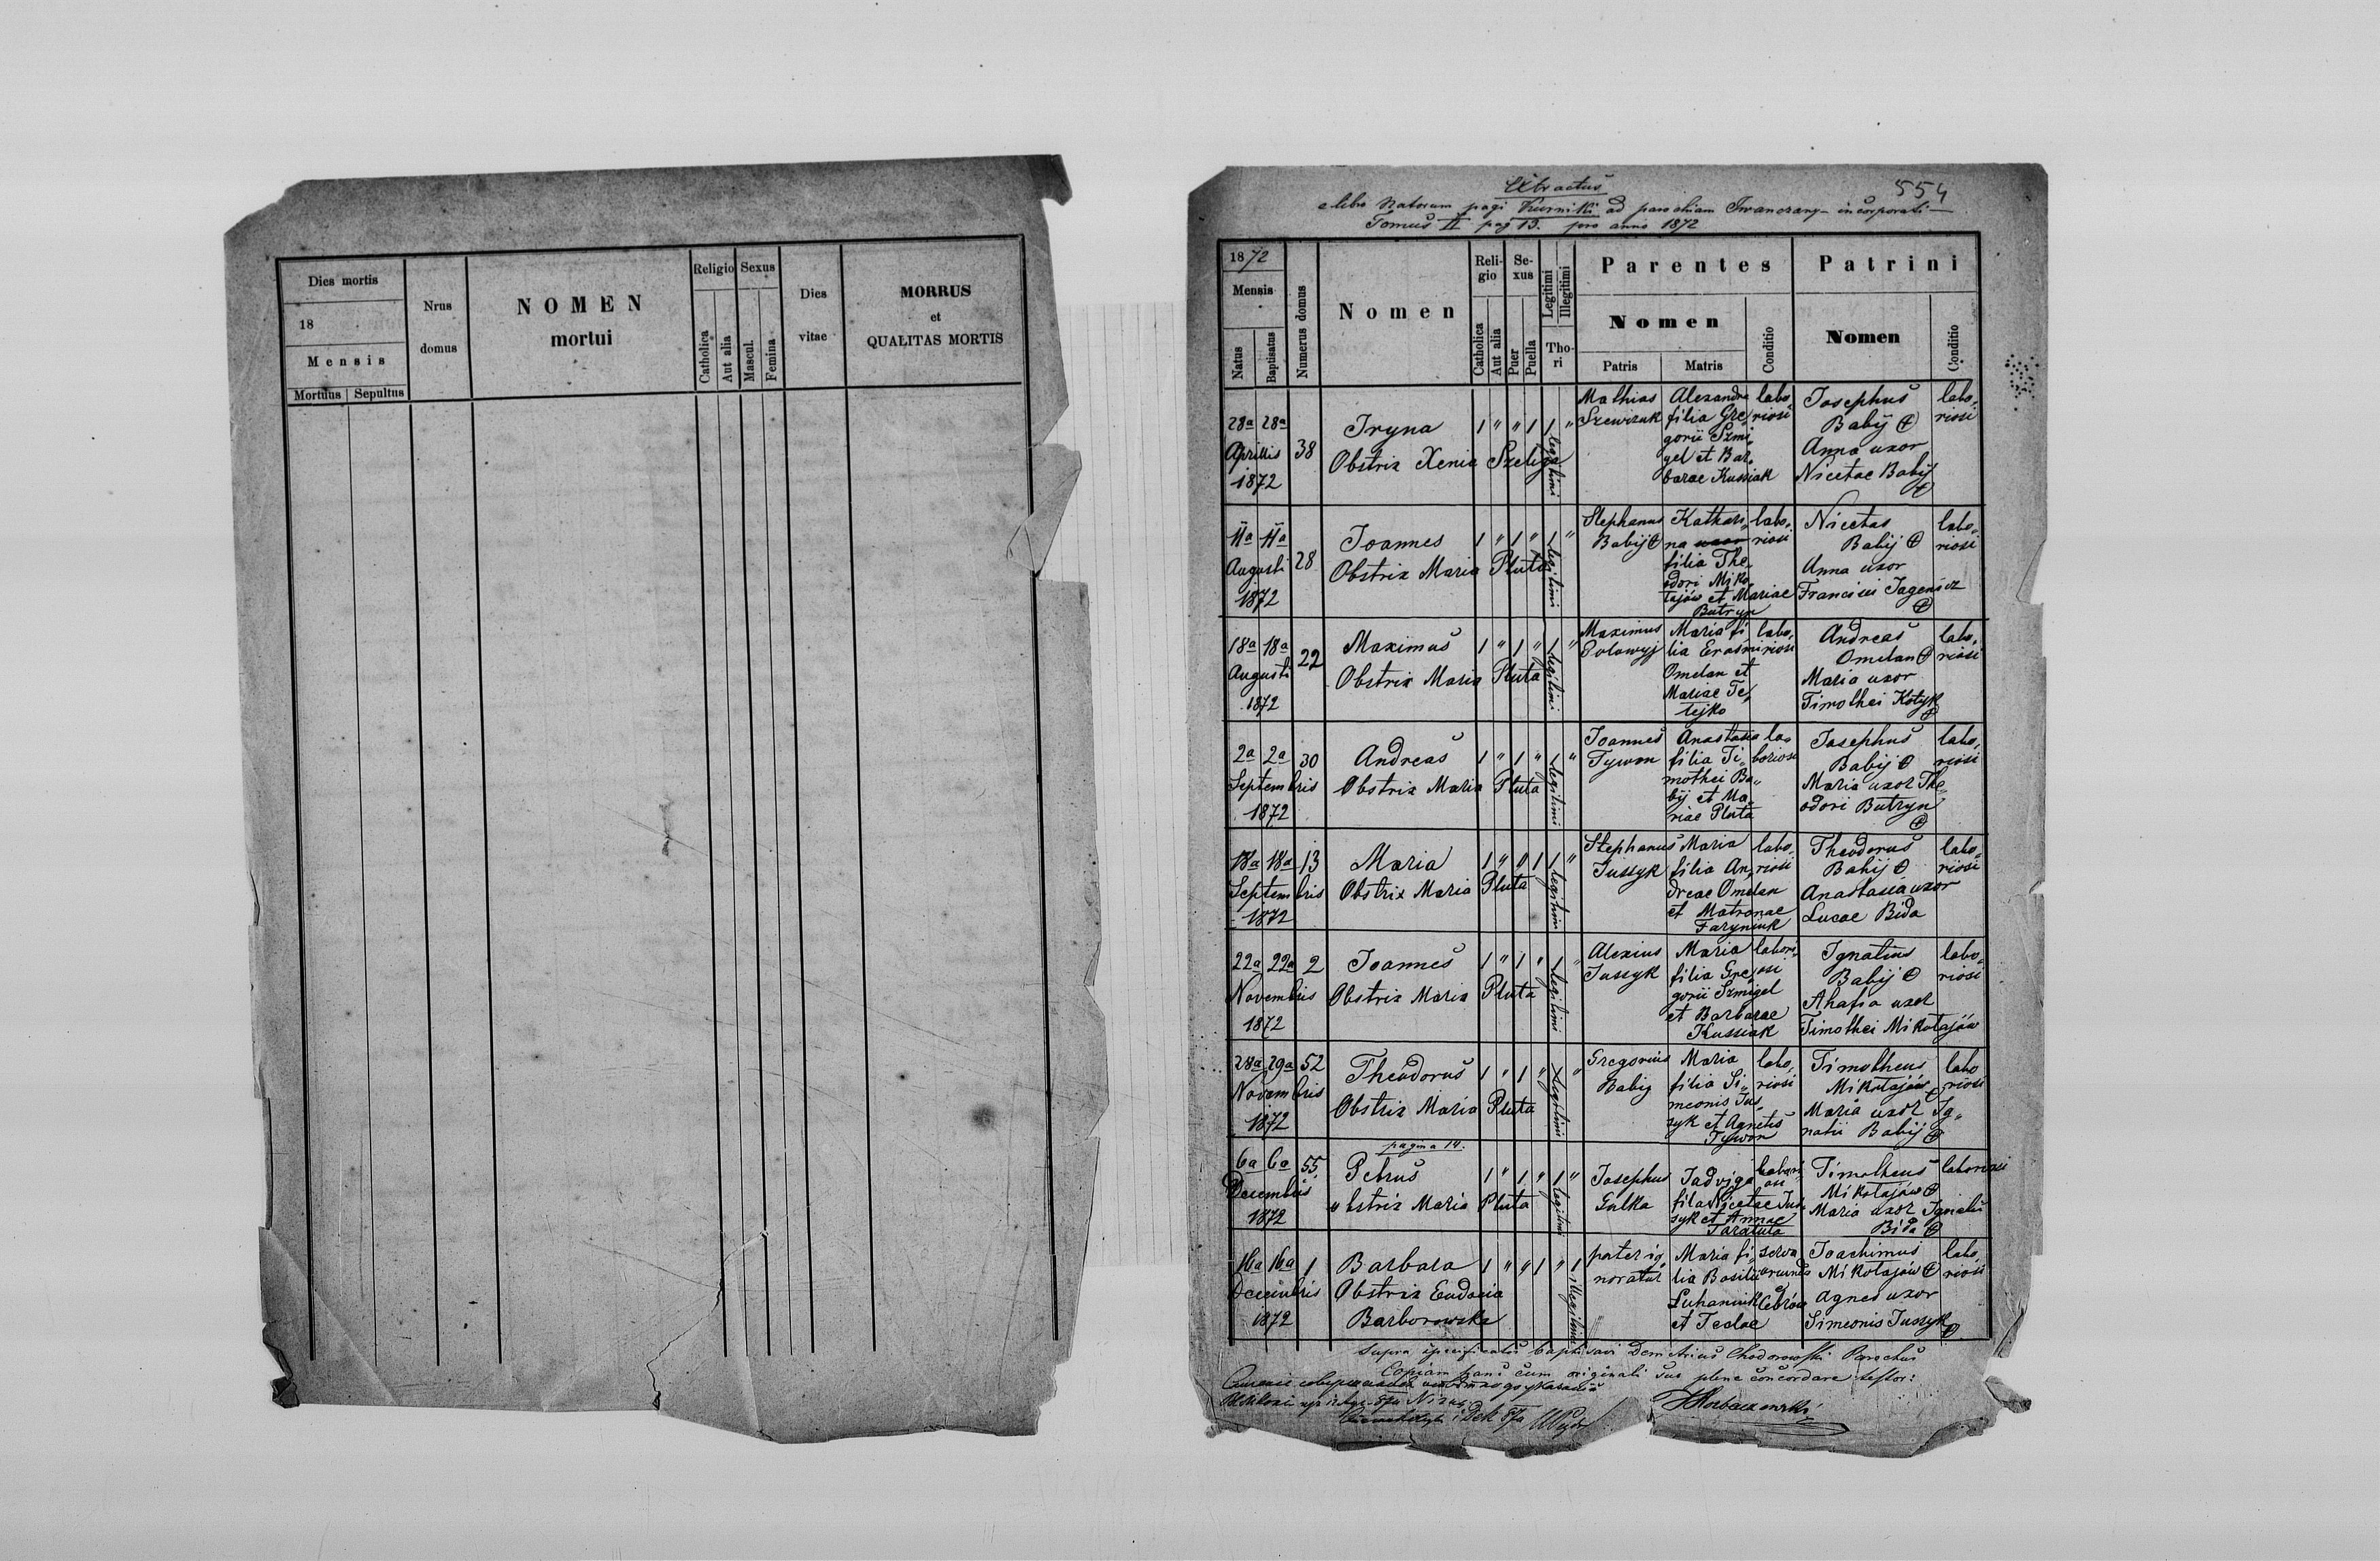 Dies mortis
18
Mensis
Mortuus Sepultus
Nrus
domus
NOMEN
mortui
Religio Sexus
Catholica
Aut alia
Mascul.
Femina
Dies
vitae
MORRUS
et
QUALITAS MORTIS
Extractus
554
e libro Natorum pagi Kurniki ad parochiam Iwanczany incorporati
Tomus II pag 13. pro anno 1872
1872
Mensis
Natus
Baptisatus
Numerus domus
Nomen
Reli-
gio
Catholica
Aut alia
Se-
xus
Puer
Puella
Legitimi
Illegitimi
Tho-
ri
Parentes
Nomen
Patris
Matris
Conditio
Patrini
Nomen
Conditio
28a 28a
Aprilis
1872
38
Iryna
Obstrix Xenia Szeliga
1 " " 1 1 "
legitimi
Mathias
Szewczuk
Alexandra
filia Gre,
gorii Szmi,
gel et Bar,
barae Kussiak
labo,
riosi
Josephus
Babij +
Anna uxor
Nicetae Babij
+
labo,
riosi
11a 11a
Augusti
1872
28
Joannes
Obstrix Maria Pluta
1 " 1 " 1 "
legitimi
Stephanus
Babij +
Kathari,
na uxor
filia The,
odori Miko,
łajów et Mariae
Butryn
labo,
riosi
Nicetas
Babij +
Anna uxor
Francisci Jagenicz
+
labo,
riosi
18a 18a
Augusti
1872
22
Maximus
Obstrix Maria Pluta
1 " 1 " 1 "
legitimi
Maximus
Polowyj
Maria fi,
lia Erasmi
Omelan et
Mariae Te,
lejko
labo,
riosi
Andreas
Omelan +
Maria uxor
Timothei Kotyk
+
labo,
riosi
2a 2a
Septembris
1872
30
Andreas
Obstrix Maria Pluta
1 " 1 " 1 "
legitimi
Joannes
Tywon
Anastasia
filia Ti,
mothei Ba,
bij et Ma,
riae Pluta
la,
boriosi
Josephus
Babij +
Maria uxor The,
odori Butryn
+
labo,
riosi
18a 18a
Septembris
1872
13
Maria
Obstrix Maria Pluta
1 " 0 1 1 "
legitimi
Stephanus
Juszyk
Maria
filia An,
dreae Omelan
et Matronae
Faryniuk
labo,
riosi
Theodorus
Babij +
Anastasia uxor
Lucae Bida
labo,
riosi
22a 22a
Novembris
1872
2
Joannes
Obstrix Maria Pluta
1 " 1 " 1 "
legitimi
Alexius
Juszyk
Maria
filia Gre,
gorii Szmigel
et Barbarae
Kussiak
labori,
osi
Ignatius
Babij +
Ahafia uxor
Timothei Mikołajów
labo,
riosi
28a 29a
Novembris
1872
52
Theodorus
Obstrix Maria Pluta
1 " 1 " 1 "
legitimi
Gregorius
Babij
Maria
filia Si,
meonis Jus,
zyk et Agnetis
Tywon
labo,
riosi
Timotheus
Mikołajów +
Maria uxor Ig,
natii Babij +
labo
riosi
pagina 14.
6a 6a
Decembris
1872
55
Petrus
Obstrix Maria Pluta
1 " 1 " 1 "
legitimi
Josephus
Gulka
Jadviga
filia Nicetae Jus,
zyk et Annae
Taratuta
labori,
osi
Timotheus
Mikołajów +
Maria uxor Ignatii
Bida +
laboriosi
16a 16a
Decembris
1872
1
Barbara
Obstrix Eudocia
Barborowska
1 " " 1 " 1
illegitimi
pater ig,
noratur
Maria fi,
lia Basilii
Luhaniuk
et Teclae
Joachimus
Mikołajów +
Agnes uxor
Simeonis Juszyk
+
labo,
riosi
Supra specificatos baptisavi Demetrius Chodorowski Parochus
Copiam hanc cum originali suo plene concordare testor: